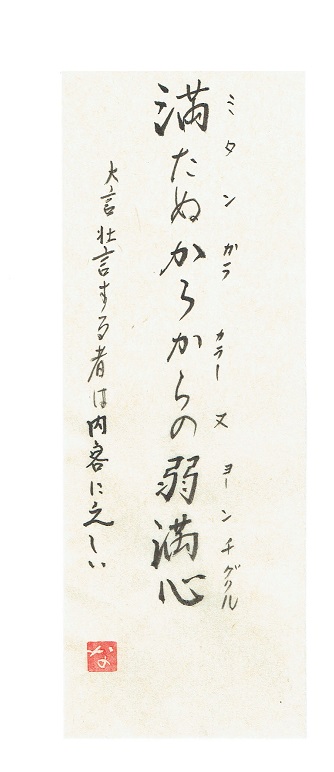 ミタンガラカラーヌヨーンチグクル
満たぬからからの弱満心
大言壮言する者は内容に乏しい